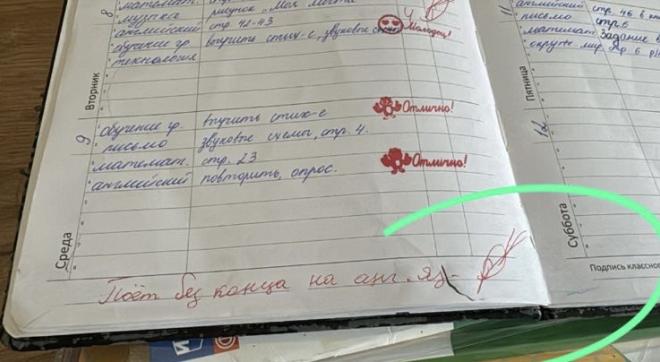 8
математ.
музыка рисунок „Моя мечта
английский стр. 42-43
обучение гр. выучить стих-е, звуковые схемы
технология
Молодец!
Вторник
9
обучение гр. выучить стих-е
письмо звуковые схемы, стр. 4.
математ. стр. 23
английский повторить, опрос.
Отлично!
Отлично!
Среда
Поёт без конца на анг. яз-
11
английский стр. 46 в
письмо стр. 6
математ задание в
окруж. мир
Пятница
12
Суббота
Подпись классно